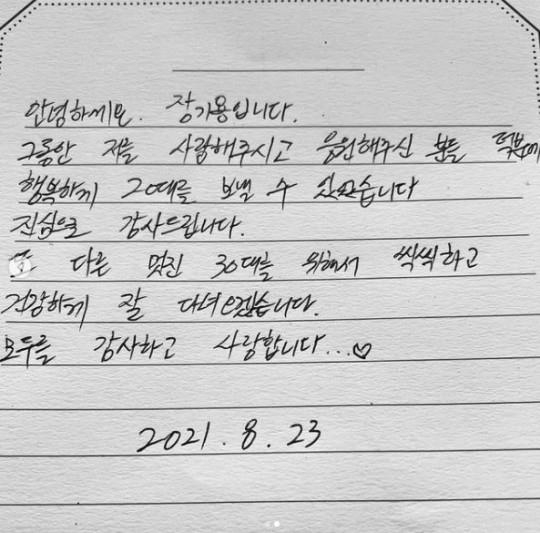 안녕하세요. 장기용입니다.
그동안 저를 사랑해주시고 응원해주신 분들 덕분에
행복하게 20대를 보낼 수 있었습니다
진심으로 감사드립니다.
또 다른 멋진 30대를 위해서 씩씩하고
건강하게 잘 다녀오겠습니다.
모두를 감사하고 사랑합니다...♡
2021. 8. 23